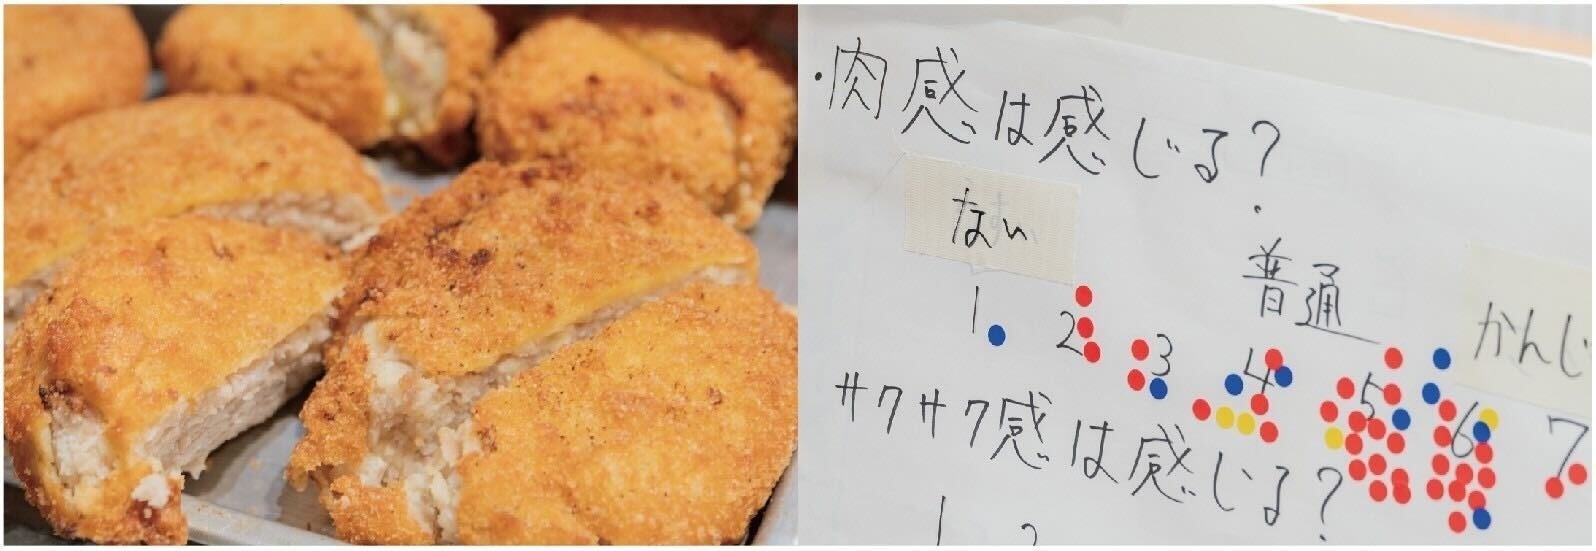 ・肉感は感じる?
ない
普通
かんじ
1 2 3 4 5 6 7
サクサク感は感じる?
1 2